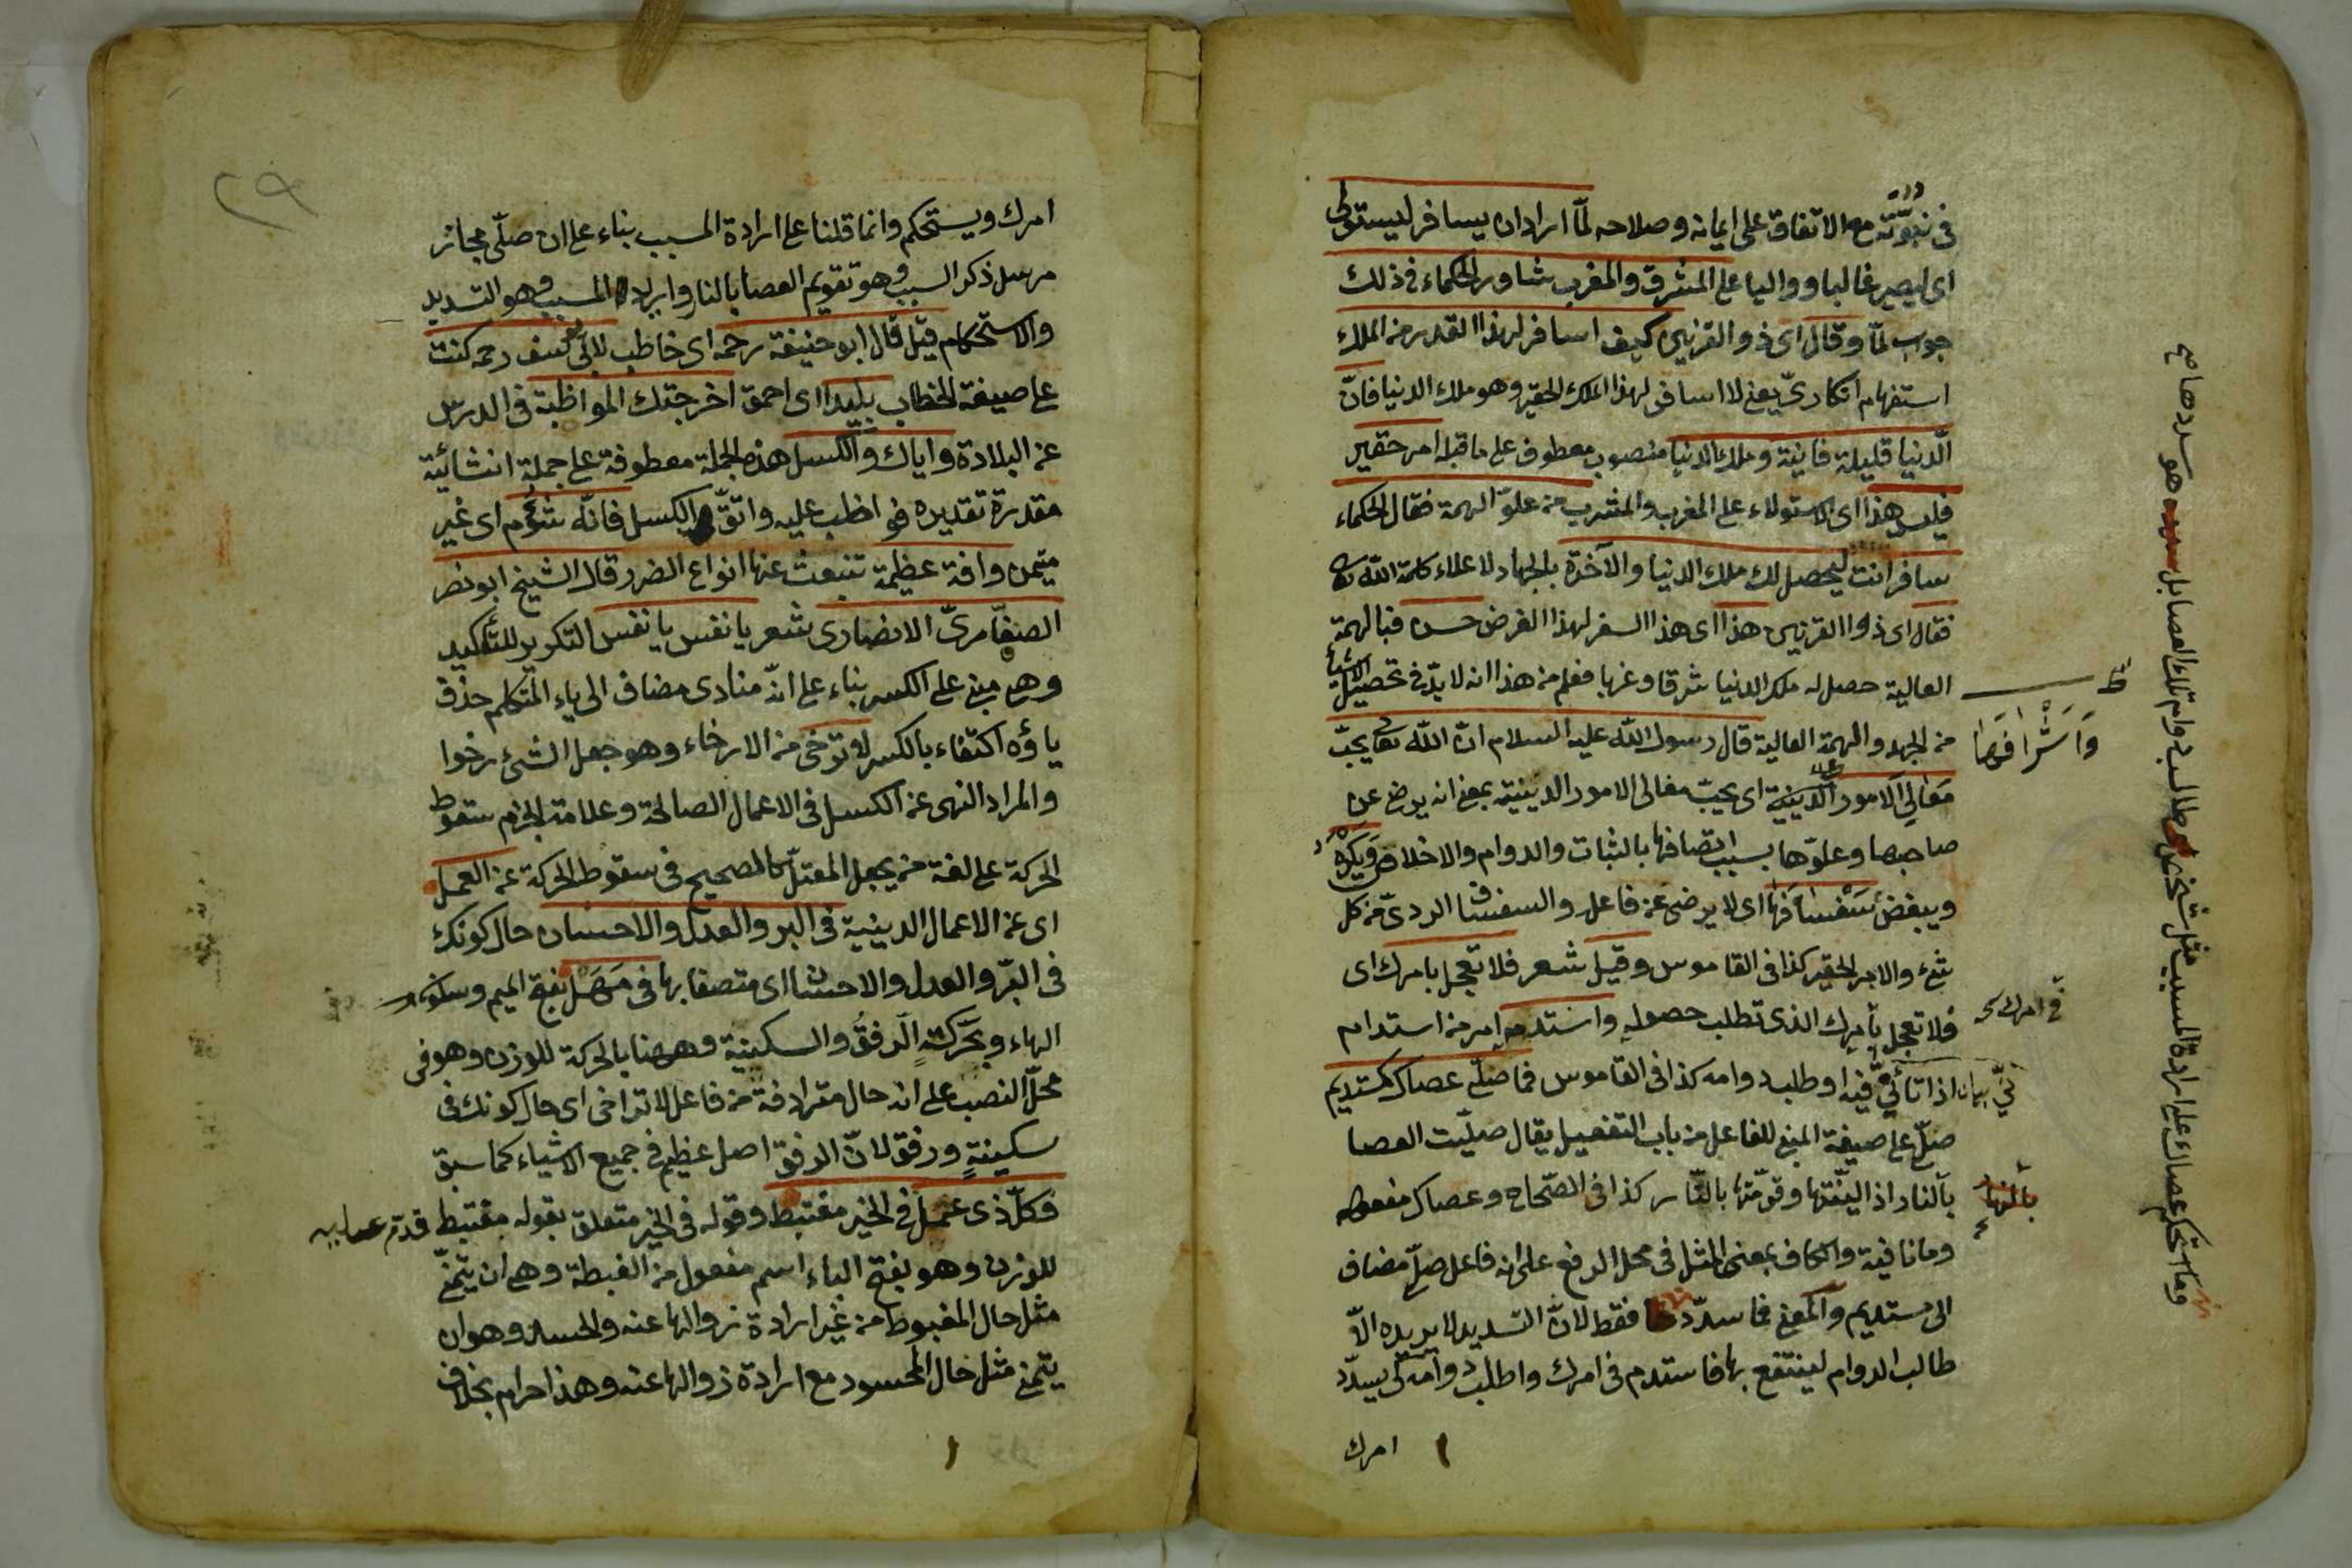 فى نبوّته مع الاتفاق على ايمانه وصلاحه لمّا اراد ان يسافر ليستولى
اى ليصير غالبا وواليا على المشرق والمغرب شاور الحكماء فى ذلك
جواب لمّا وقال اى ذو القرنين كيف اسافر لهذا القدر من الملك
استفهام انكارىّ يعنى لا اسافر لهذا الملك الحقير وهو ملك الدنيا فانّ
الدّنيا قليلة فانية وملك الدنيا منصوب معطوف على ما قبله امر حقير
فليس هذا اى الاستولاء على المغرب والمشرب من علوّ الهمة فقال الحكماء
سافر انت ليحصل لك ملك الدنيا والآخرة بالجهاد لاعلاء كلمة الله تعا
فقال اى ذوا القرنين هذا اى هذا السفر لهذا الغرض حسن فبالهمة
العالية حصل له ملك الدنيا شرقا وغربا فعلم من هذا انه لا بدّ فى تحصيل الاشياء
من الجهد والهمة العالية قال رسول الله عليه السلام انّ الله تعا يحبّ
مَعَالِىَ الامور الدّينية اى يحبّ معالى الامور الدينية بمعنى انه يرضى عن
وَاَشْرَافَهَا
صاحبها وعلوّها بسبب اتصافها بالثبات والدوام والاخلاص وَيَكْرَهُ
ويبغض سَفْسَافَهَا اى لا يرضى عن فاعله والسفساف الردىّ من كل
شئ والامر الحقير كذا فى القاموس وقيل شعر فلا تعجل بامرك اى
فلا تعجل بأمرك الذى تطلب حصوله واستدمه امر من استدام
فى امرك
اذا تأنّى فيه او طلب دوامه كذا فى القاموس فما صلّى عصاك كمستديم
صلّى على صيغة المبنى للفاعل من باب التفعيل يقال صلّيت العصا
بالنار اذا ليّنتها وقوّمتها بالنّار كذا فى الصّحاح وعصاك مفعوله
وما نافية والكاف بمعنى المثل فى محل الرفع على انه فاعل صلّى مضاف
الى مستديم والمعنى فما سدّد فقط لانّ التسديد لا يريده الّا
طالب الدوام لينتفع بها فاستدم فى امرك واطلب دوامه كى يسدّد
امرك
٢٩
امرك ويستحكم وانما قلنا على ارادة المسبب بناء على ان صلّى مجاز
مرسل ذكر السبب وهو تقويم العصا بالنار واريد المسبب وهو التسديد
والاستحكام قيل قال ابو حنيفة رحمه اى خاطب لابى يوسف رحمه كنت
على صيغة الخطاب بليدا اى احمق اخرجتك المواظبة فى الدرس
عن البلادة واياك والكسل هذه الجملة معطوفة على جملة انشائية
مقدرة تقديره فواظب عليه واتقّ الكسل فانّه شؤم اى غير
متيمن وافة عظيمة تنبعث عنها انواع الضرر قال الشيخ ابو نصر
الصفّارىّ الانصارى شعر يا نفس يا نفس التكرير للتأكيد
وهى مبنى على الكسر بناء على انّه منادى مضاف الى ياء المتكلم حذف
ياؤه اكتفاء بالكسر لا ترخى من الارخاء وهو جعل الشئ رخوا
والمراد النهى عن الكسل فى الاعمال الصالحة وعلامة الجزم سقوط
الحركة على لغة من يجعل المعتلّ كالصحيح فى سقوط الحركة عن العمل
اى عن الاعمال الدينية فى البر والعدل والاحسان حال كونك
فى البرّ والعدل والاحسان اى متصفا بها فى مَهَل بفتح الميم وسكون
الهاء وبحركته الرفق والسكينة وههنا بالحركة للوزن وهو فى
محلّ النصب على انه حال مترادفة من فاعل لا تراخى اى حال كونك فى
سكينةٍ ورفق لانّ الرفق اصل عظيم فى جميع الاشياء كما سبق
فكلّ ذى عمل فى الخير مغتبط وقوله فى الخير متعلق بقوله مغتبط قدّم
للوزن وهو بفتح الباء اسم مفعول من الغبطة وهى ان يتمنّى
مثل حال المغبوط من غير ارادة زوالها عنه والحسد وهو ان
يتمنى مثل حال المحسود مع ارادة زوالها عنه وهذا حرام بخلاف